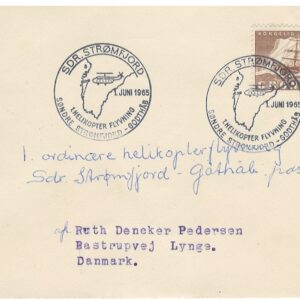 SDR. STRØMFJORD
1. JUNI 1965
1. HELIKOPTER FLYVNING
SØNDRE STRØMFJORD - GODTHÅB
KONGELIG
SDR. STRØMFJORD
1. JUNI 1965
1. HELIKOPTER FLYVNING
SØNDRE STRØMFJORD - GODTHÅB
1. ordinære helikopterflyvning
Sdr. Strømfjord - Gåthåb.
af. Ruth Dencker Pedersen
Bastrupvej Lynge.
Danmark.